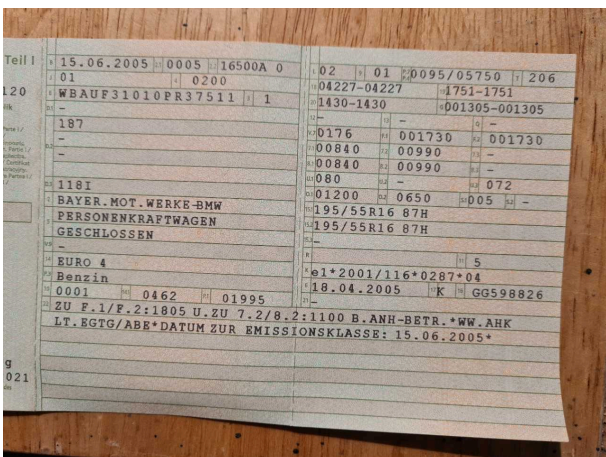 Teil I
15.06.2005 0005 16500A 0
01 0200
WBAUF31010PR37511 1
-
187
-
-
118I
BAYER.MOT.WERKE-BMW
PERSONENKRAFTWAGEN
GESCHLOSSEN
-
EURO 4
Benzin
0001 0462 01995
02 01 0095/05750 206
04227-04227 1751-1751
1430-1430 001305-001305
- - -
0176 001730 001730
00840 00990 -
00840 00990 -
080 - 072
01200 0650 005 -
195/55R16 87H
195/55R16 87H
-
5
e1*2001/116*0287*04
18.04.2005 K GG598826
-
ZU F.1/F.2:1805 U.ZU 7.2/8.2:1100 B.ANH-BETR.*WW.AHK
LT.EGTG/ABE*DATUM ZUR EMISSIONSKLASSE: 15.06.2005*
120
g
021